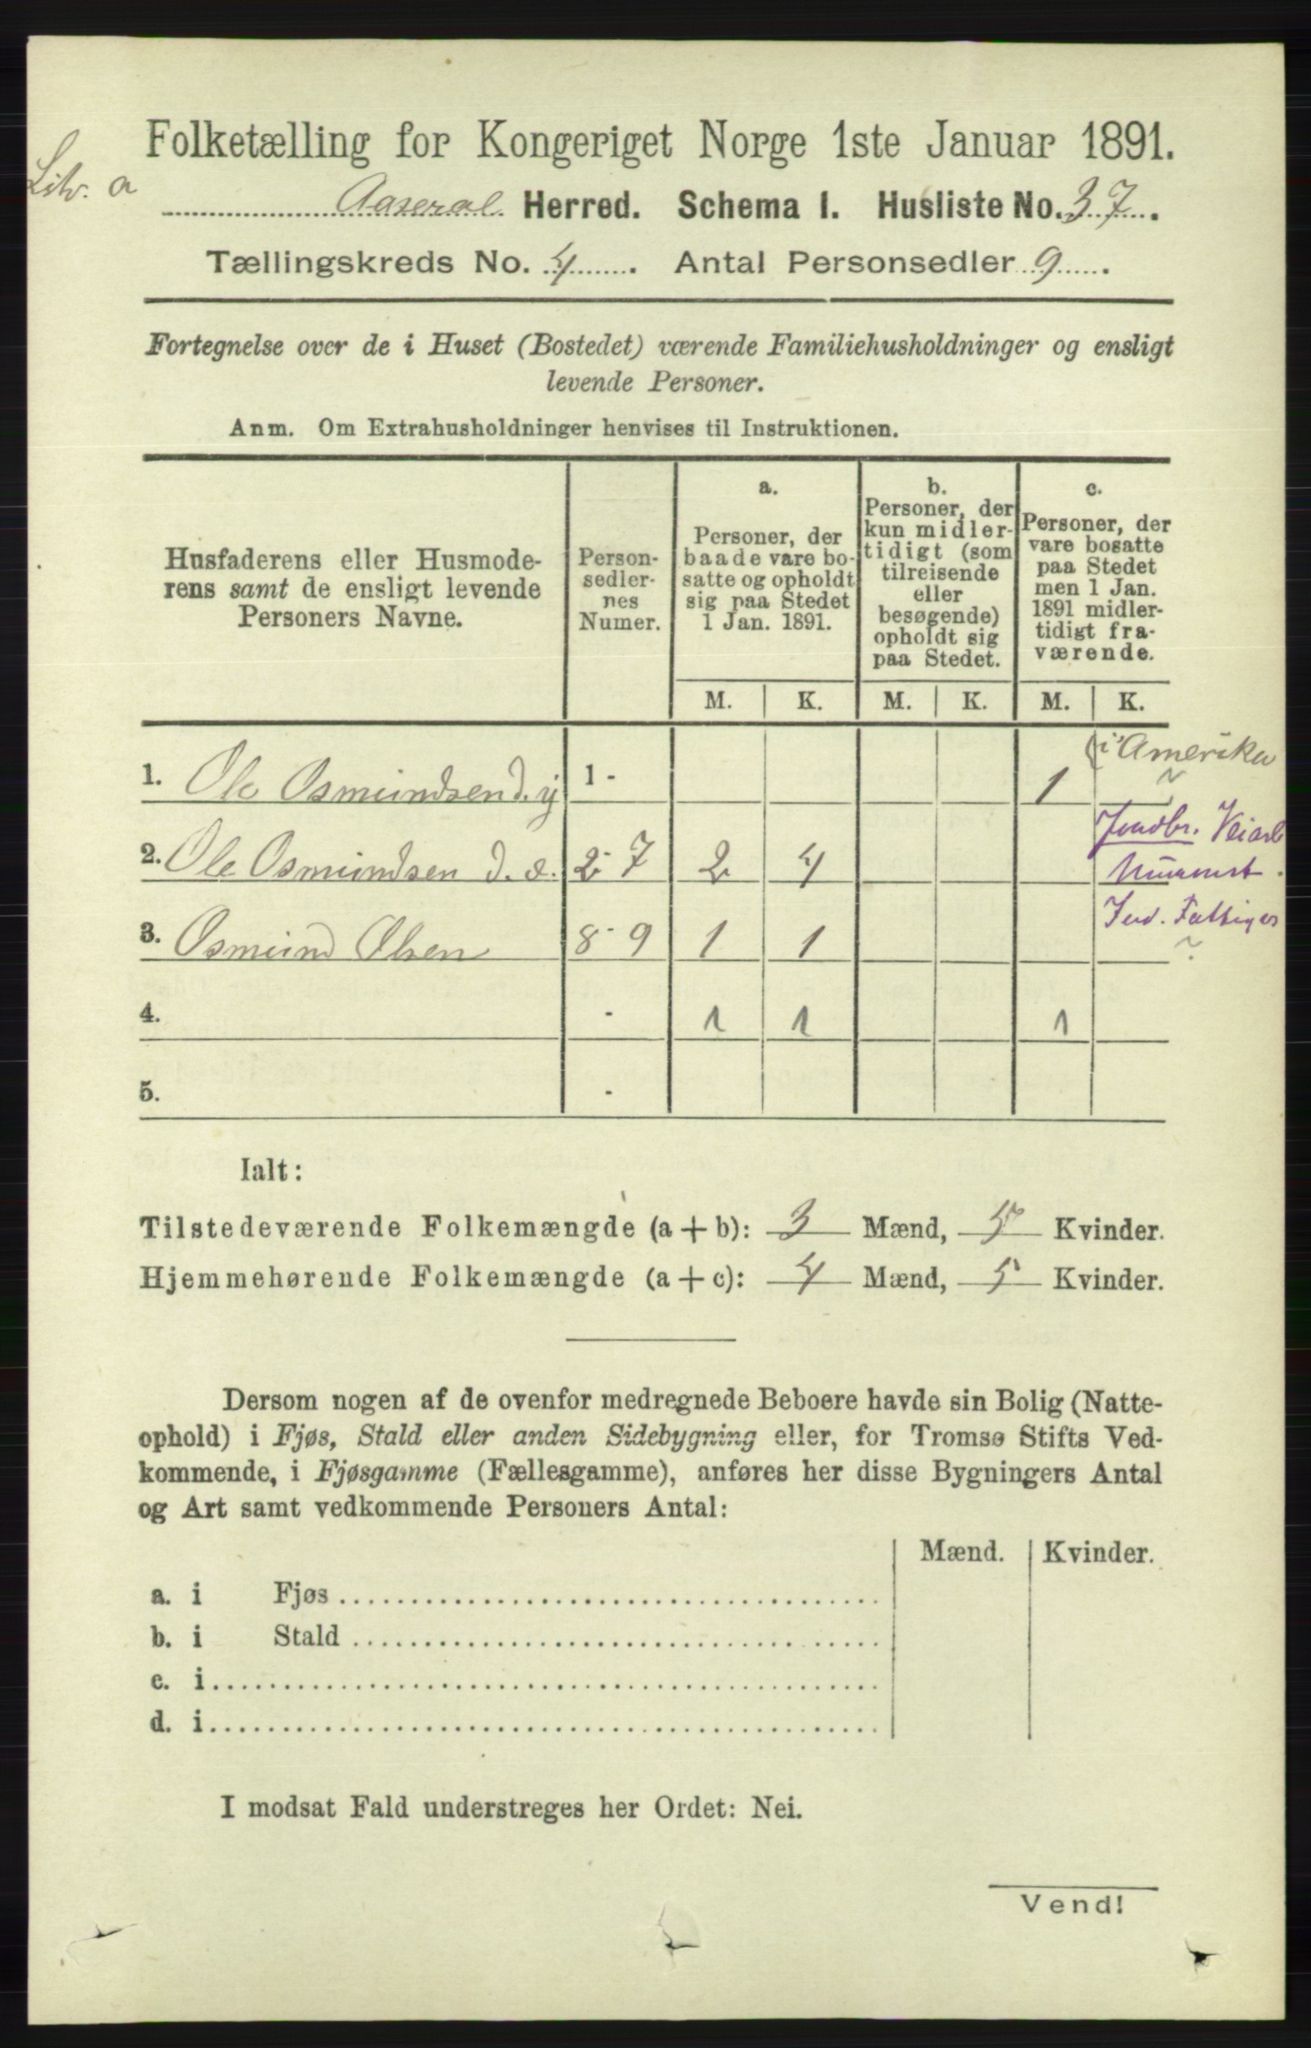 Folketælling for Kongeriget Norge 1ste Januar 1891.
Litr. a
Aaseral Herred. Schema I. Husliste No. 37.
Tællingskreds No. 4. Antal Personsedler 9.
Fortegnelse over de i Huset (Bostedet) værende Familiehusholdninger og ensligt
levende Personer.
Anm. Om Extrahusholdninger henvises til Instruktionen.
Husfaderens eller Husmode-
rens samt de ensligt levende
Personers Navne.
Person-
sedler-
nes
Numer.
a.
Personer, der
baade vare bo-
satte og opholdt
sig paa Stedet
1 Jan. 1891.
b.
Personer, der
kun midler-
tidigt (som
tilreisende
eller
besøgende)
opholdt sig
paa Stedet.
c.
Personer, der
vare bosatte
paa Stedet
men 1 Jan.
1891 midler-
tidigt fra-
værende.
M. K. M. K. M. K.
1. Ole Osmundsen d.y 1 - 1 (i Amerika
2. Ole Osmundsen d. æ. 2 - 7 2 4
Jordbr.
3. Osmund Olsen 8 - 9 1 1
Ind.
4. - 1 1 1
5. -
Ialt:
Tilstedeværende Folkemængde (a + b): 3 Mænd, 5 Kvinder.
Hjemmehørende Folkemængde (a + c): 4 Mænd, 5 Kvinder.
Dersom nogen af de ovenfor medregnede Beboere havde sin Bolig (Natte-
ophold) i Fjøs, Stald eller anden Sidebygning eller, for Tromsø Stifts Ved-
kommende, i Fjøsgamme (Fællesgamme), anføres her disse Bygningers Antal
og Art samt vedkommende Personers Antal:
Mænd. Kvinder.
a. i Fjøs
b. i Stald
c. i
d. i
I modsat Fald understreges her Ordet: Nei.
Vend!